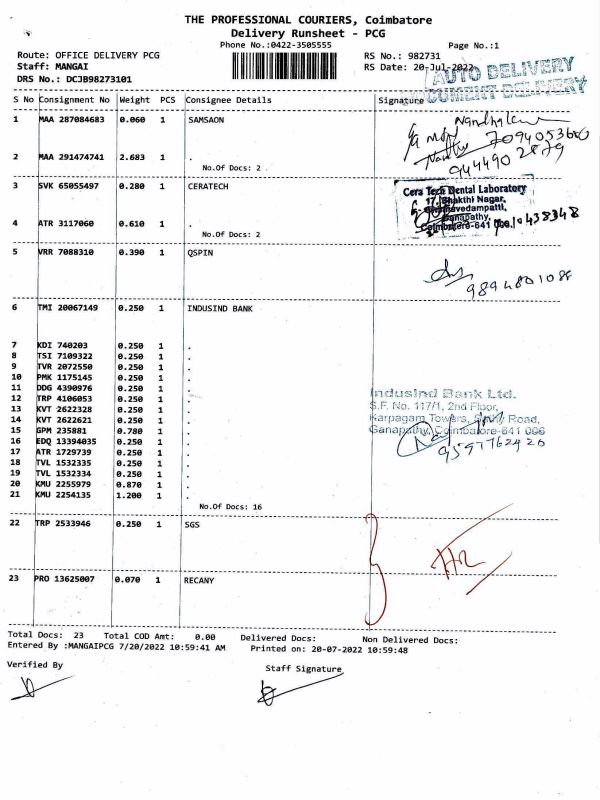 THE PROFESSIONAL COURIERS, Coimbatore
Delivery Runsheet - PCG
Phone No.:0422-3505555
Page No.:1
Route: OFFICE DELIVERY PCG
RS No.: 982731
Staff: MANGAI
RS Date: 20-Jul-2022
DRS No.: DCJB98273101
AUTO DELIVERY
DOCUMENT DELIVERY
S No Consignment No Weight PCS Consignee Details Signature
1 MAA 287084683 0.060 1 SAMSAON
7094053600
2 MAA 291474741 2.683 1 .
No.Of Docs: 2
944490 2879
3 SVK 65055497 0.280 1 CERATECH
Cera Tech Dental Laboratory
17, Shakthi Nagar,
Ganapathy,
Coimbatore-641 006.
4 ATR 3117060 0.610 1 .
No.Of Docs: 2
5 VRR 7088310 0.390 1 QSPIN
9894801088
6 TMI 20067149 0.250 1 INDUSIND BANK
7 KDI 740203 0.250 1 .
8 TSI 7109322 0.250 1 .
9 TVR 2072550 0.250 1 .
10 PMK 1175145 0.250 1 .
11 DDG 4390976 0.250 1 .
12 TRP 4106053 0.250 1 .
13 KVT 2622328 0.250 1 .
14 KVT 2622621 0.250 1 .
15 GPM 235881 0.780 1 .
16 EDQ 13394035 0.250 1 .
17 ATR 1729739 0.250 1 .
18 TVL 1532335 0.250 1 .
19 TVL 1532334 0.250 1 .
20 KMU 2255979 0.870 1 .
21 KMU 2254135 1.200 1 .
No.Of Docs: 16
Indusind Bank Ltd.
S.F. No. 117/1, 2nd Floor,
Karpagam Towers, Sathy Road,
Ganapathy, Coimbatore-641 006
9597762420
22 TRP 2533946 0.250 1 SGS
23 PRO 13625007 0.070 1 RECANY
Total Docs: 23 Total COD Amt: 0.00 Delivered Docs: Non Delivered Docs:
Entered By :MANGAIPCG 7/20/2022 10:59:41 AM Printed on: 20-07-2022 10:59:48
Verified By
Staff Signature